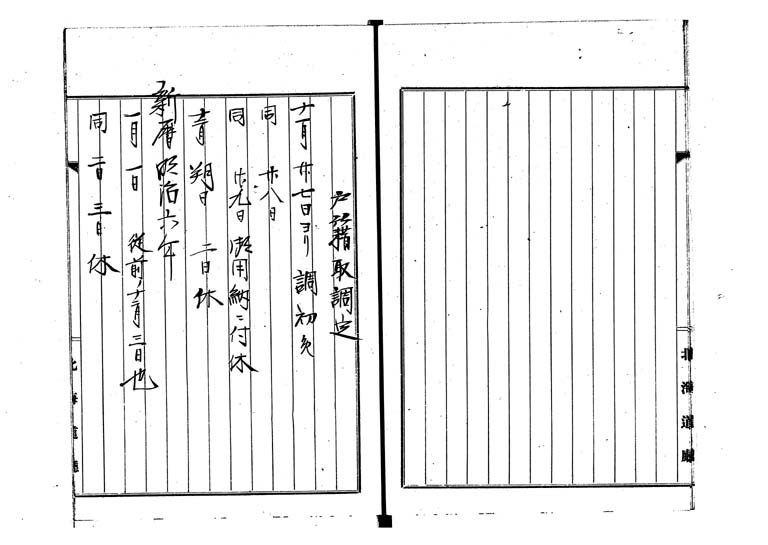 北海道廳
戸籍取調定
十一月廿七日ヨリ 調初
同 廿八日
同 廿九日 御用納ニ付休
十二月朔日 二日休
新暦明治六年
一月一日 従前ノ十二月三日也
同 二日 三日 休
北海道廳